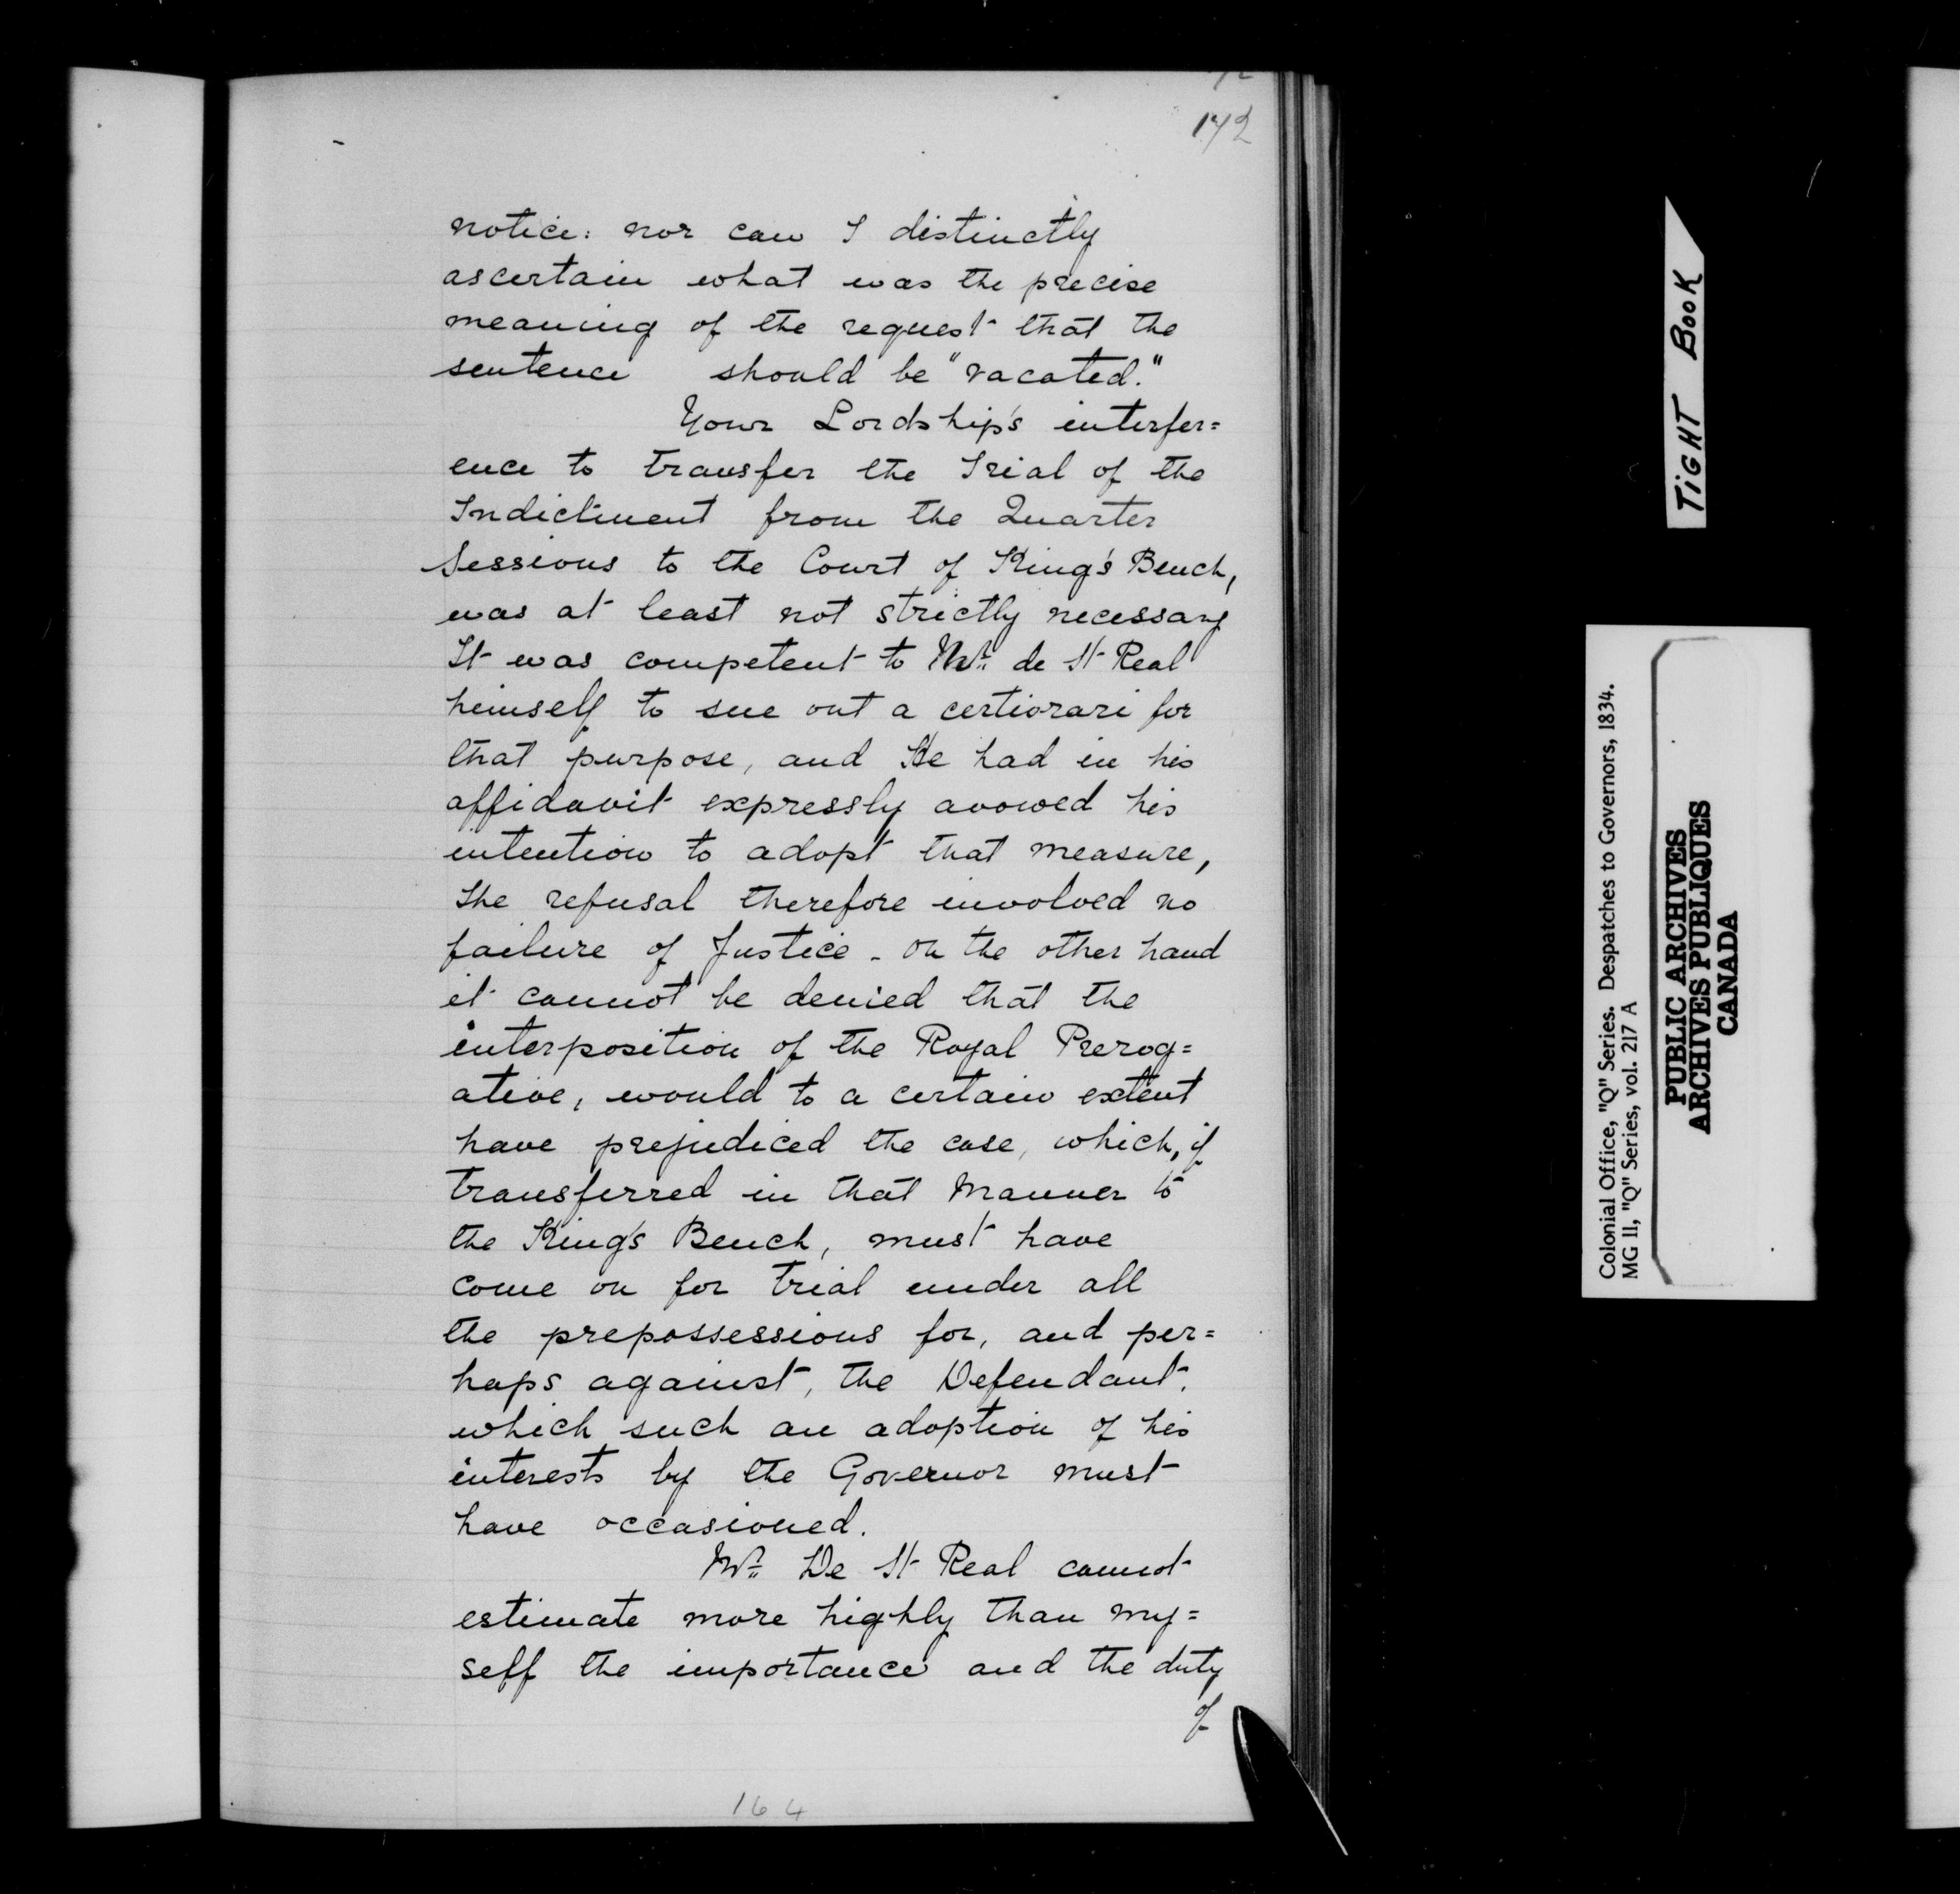 172
notice: nor can I distinctly
ascertain what was the precise
meaning of the request that the
sentence should be "vacated."
Your Lordship's interfer=
ence to transfer the Trial of the
Indictment from the Quarter
Sessions to the Court of King's Bench,
was at least not strictly necessary
It was competent to Mr. de St Real
himself to sue out a certiorari for
that purpose, and He had in his
affidavit expressly avowed his
intention to adopt that measure,
the refusal therefore involved no
failure of Justice - on the other hand
it cannot be denied that the
interposition of the Royal Prerog=
ative, would to a certain extent
have prejudiced the case, which, if
transferred in that Manner to
the King's Bench, must have
come on for trial under all
the prepossessions for, and per=
haps against, the Defendant,
which such an adoption of his
interests by the Governor must
have occasioned.
Mr. De St Real cannot
estimate more highly than my=
self the importance and the duty
of
164
TIGHT BOOK
Colonial Office, "Q" Series. Despatches to Governors, 1834.
MG 11, "Q" Series, vol. 217 A
PUBLIC ARCHIVES
ARCHIVES PUBLIQUES
CANADA